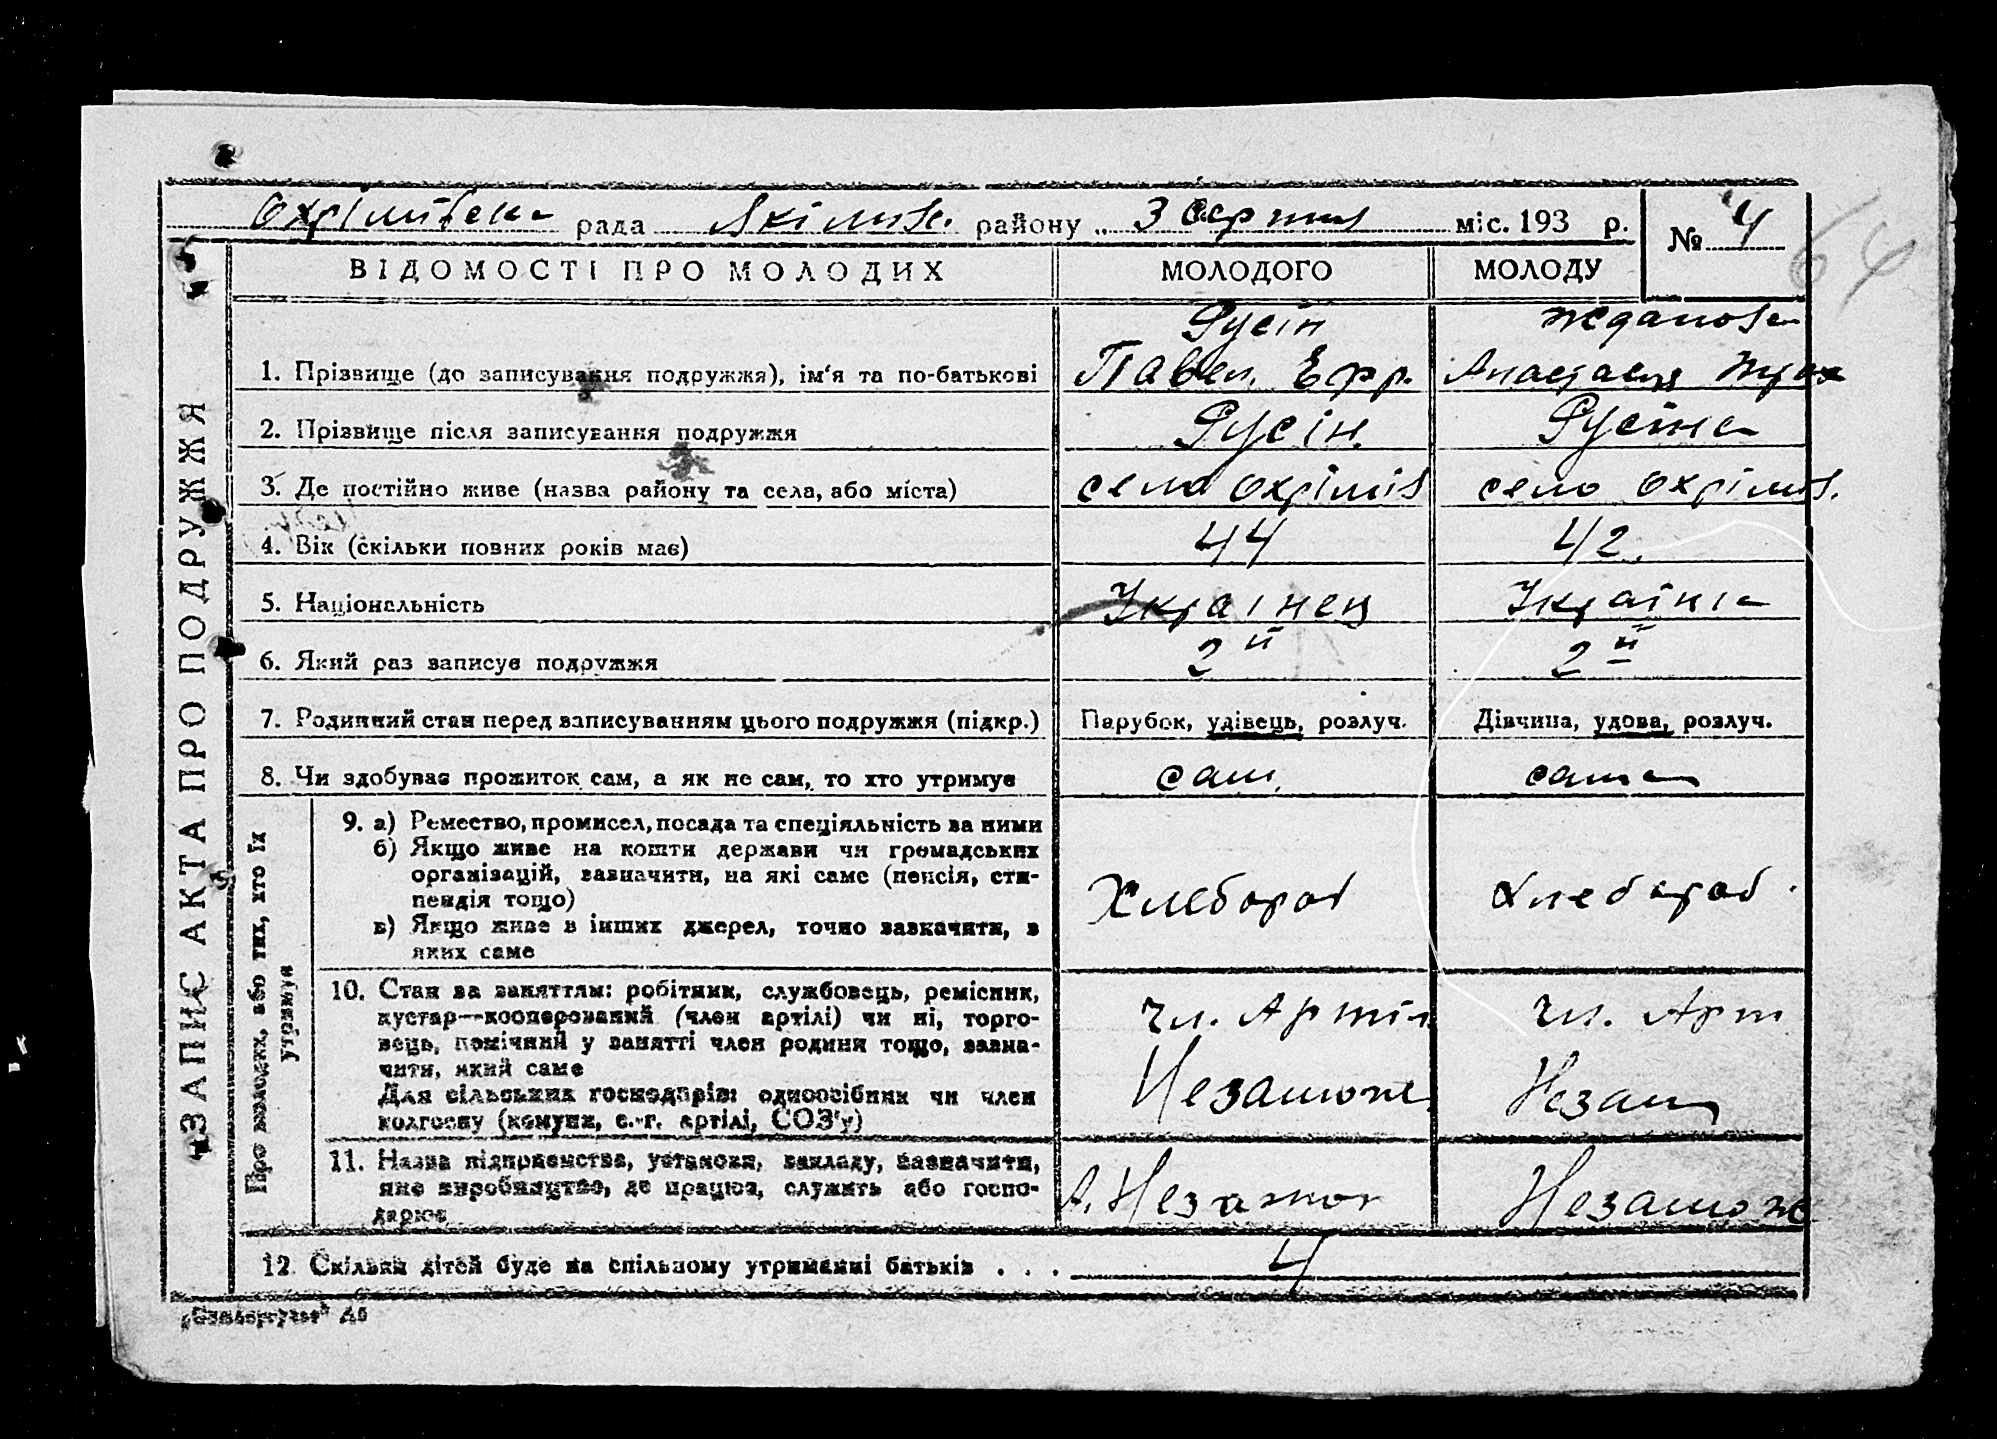 Охрімівська рада Якимів. району „ 3 Серпня міс. 193 р. № 4
64
ВІДОМОСТІ ПРО МОЛОДИХ МОЛОДОГО МОЛОДУ
Русін Жданова
1. Прізвище (до записування подружжя), ім'я та по-батькові Павел. Ефр. Анастасия
2. Прізвище після записування подружжя Русін. Русіна
3. Де постійно живе (назва району та села, або міста) село Охрімів село Охрімів.
4. Вік (скільки повних років має) 44 42.
5. Національність Українец Українка
6. Який раз записує подружжя 2й 2й
7. Родинний стан перед записуванням цього подружжя (підкр.) Парубок, удівець, розлуч. Дівчина, удова, розлуч.
8. Чи здобуває прожиток сам, а як не сам, то хто утримує сам. сама
ЗАПИС АКТА ПРО ПОДРУЖЖЯ
Про молодих, або тих, хто їх
утримує
9. а) Ремество, промисел, посада та спеціяльність за ними
б) Якщо живе на кошти держави чи громадських
організацій, зазначити, на які саме (пенсія, сти-
пендія тощо)
в) Якщо живе з інших джерел, точно зазначити, з
яких саме
Хлебороб Хлебороб.
10. Стан за заняттям: робітник, службовець, ремісник,
кустар—кооперований (член артілі) чи ні, торго-
вець, помічний у занятті член родини тощо, зазна-
чити, який саме
Для сільських господарів: одноосібник чи член
колгоспу (комуни, с.-г. артілі, СОЗ'у)
Чл. Артіл Чл. Арт
Незамож. Незам
11. Назва підприємства, установи, закладу, зазначити,
яке виробництво, де працює, служить або госпо-
дарює
А. Незамож Незамож
12. Скільки дітей буде на спільному утриманні батьків . . . 4